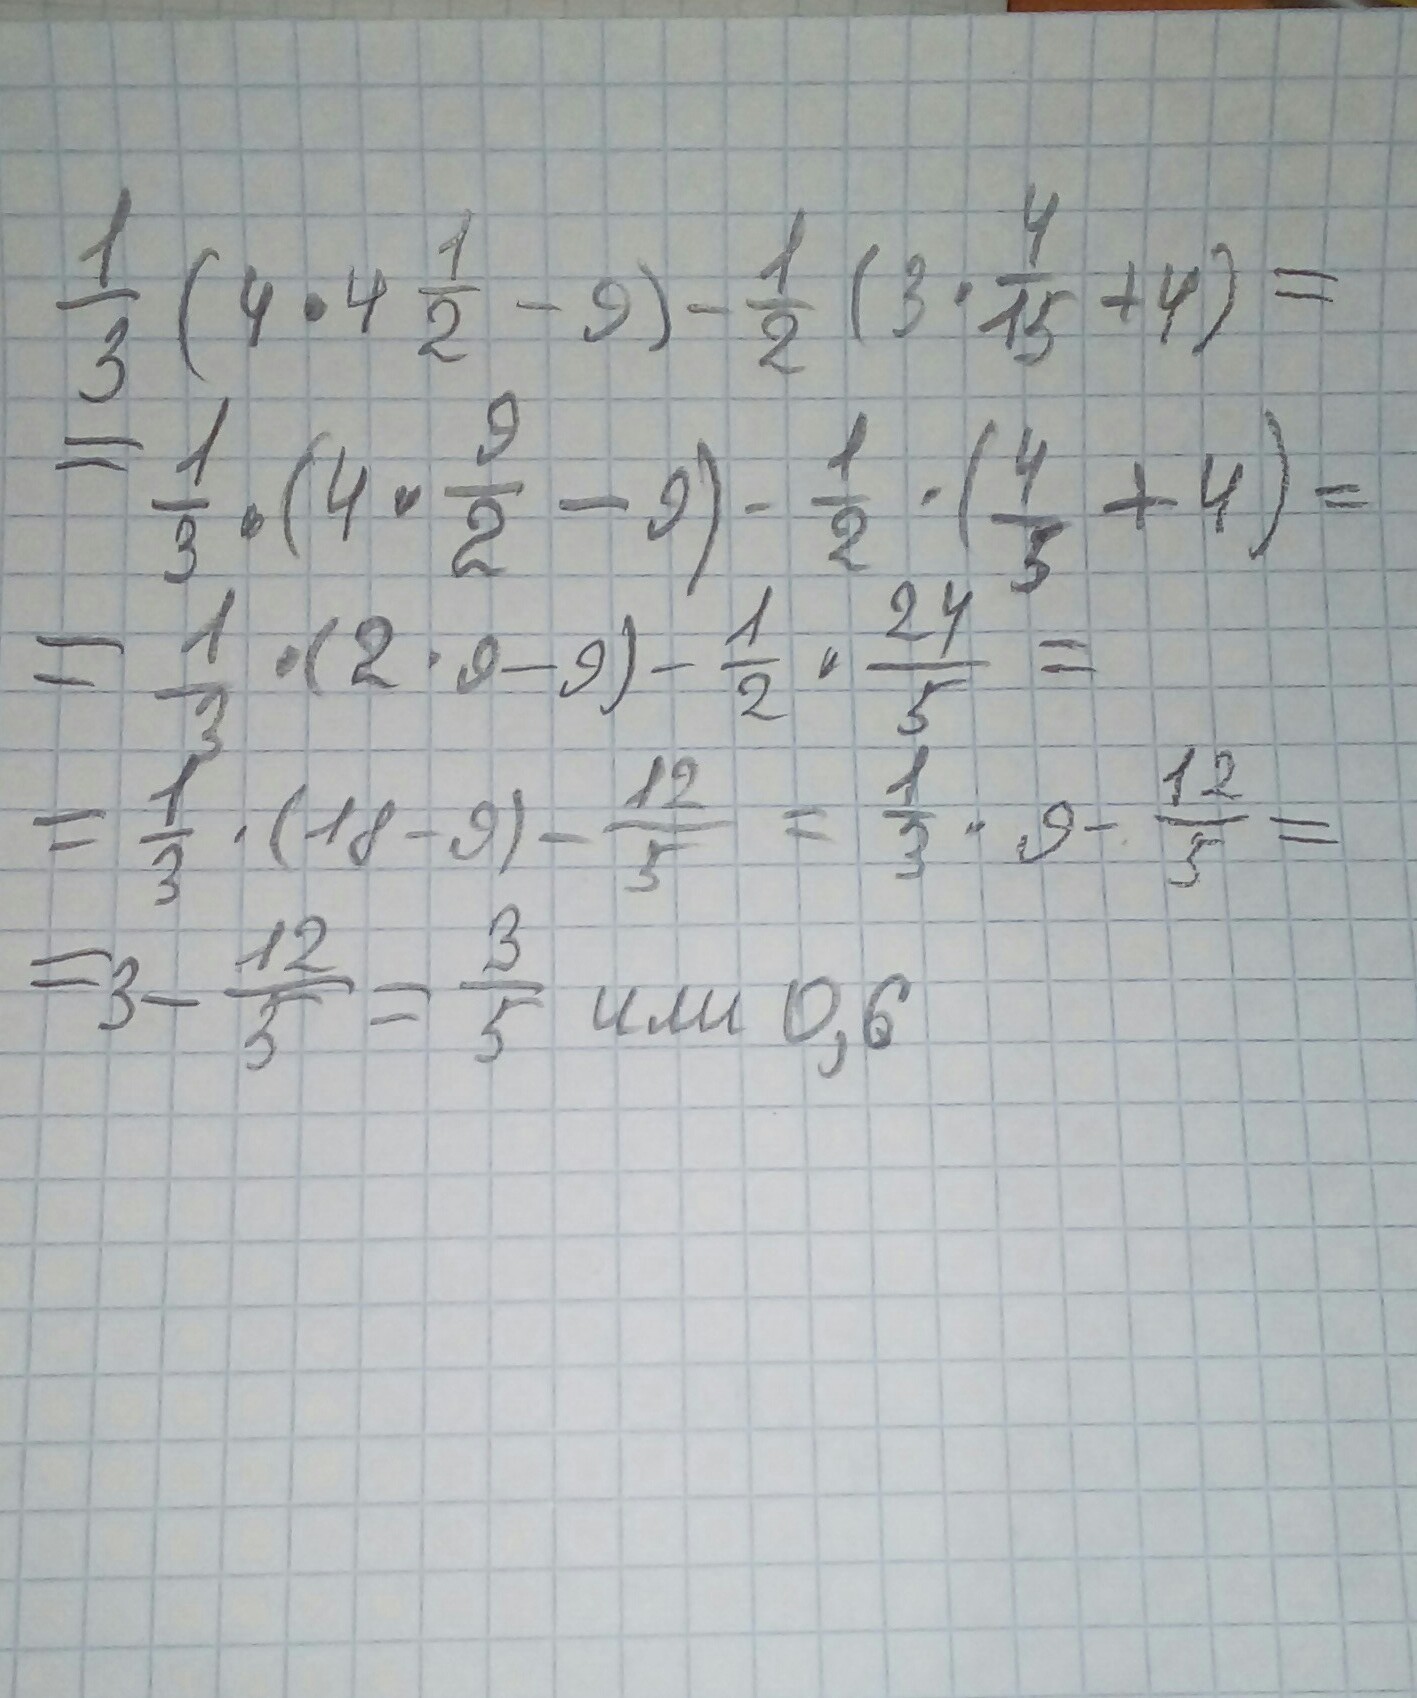 1/3 (4 · 4 1/2 - 9) - 1/2 (3 · 4/15 + 4) =
= 1/3 · (4 · 9/2 - 9) - 1/2 · (4/5 + 4) =
= 1/3 · (2 · 9 - 9) - 1/2 · 24/5 =
= 1/3 · (18 - 9) - 12/5 = 1/3 · 9 - 12/5 =
= 3 - 12/5 = 3/5 или 0,6